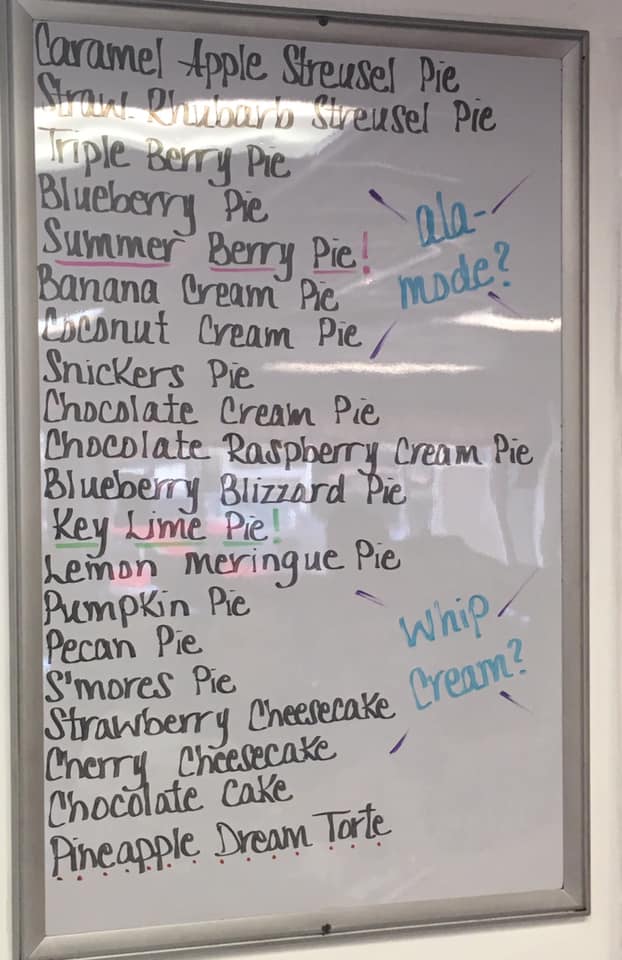 Caramel Apple Streusel Pie
Straw. Rhubarb Streusel Pie
Triple Berry Pie
Blueberry Pie
Summer Berry Pie!
Banana Cream Pie
Coconut Cream Pie
ala-
mode?
Snickers Pie
Chocolate Cream Pie
Chocolate Raspberry Cream Pie
Blueberry Blizzard Pie
Key Lime Pie!
Lemon Meringue Pie
Pumpkin Pie
Pecan Pie
S'mores Pie
Strawberry Cheesecake
Cherry Cheesecake
Chocolate Cake
Pineapple Dream Torte
Whip
Cream?